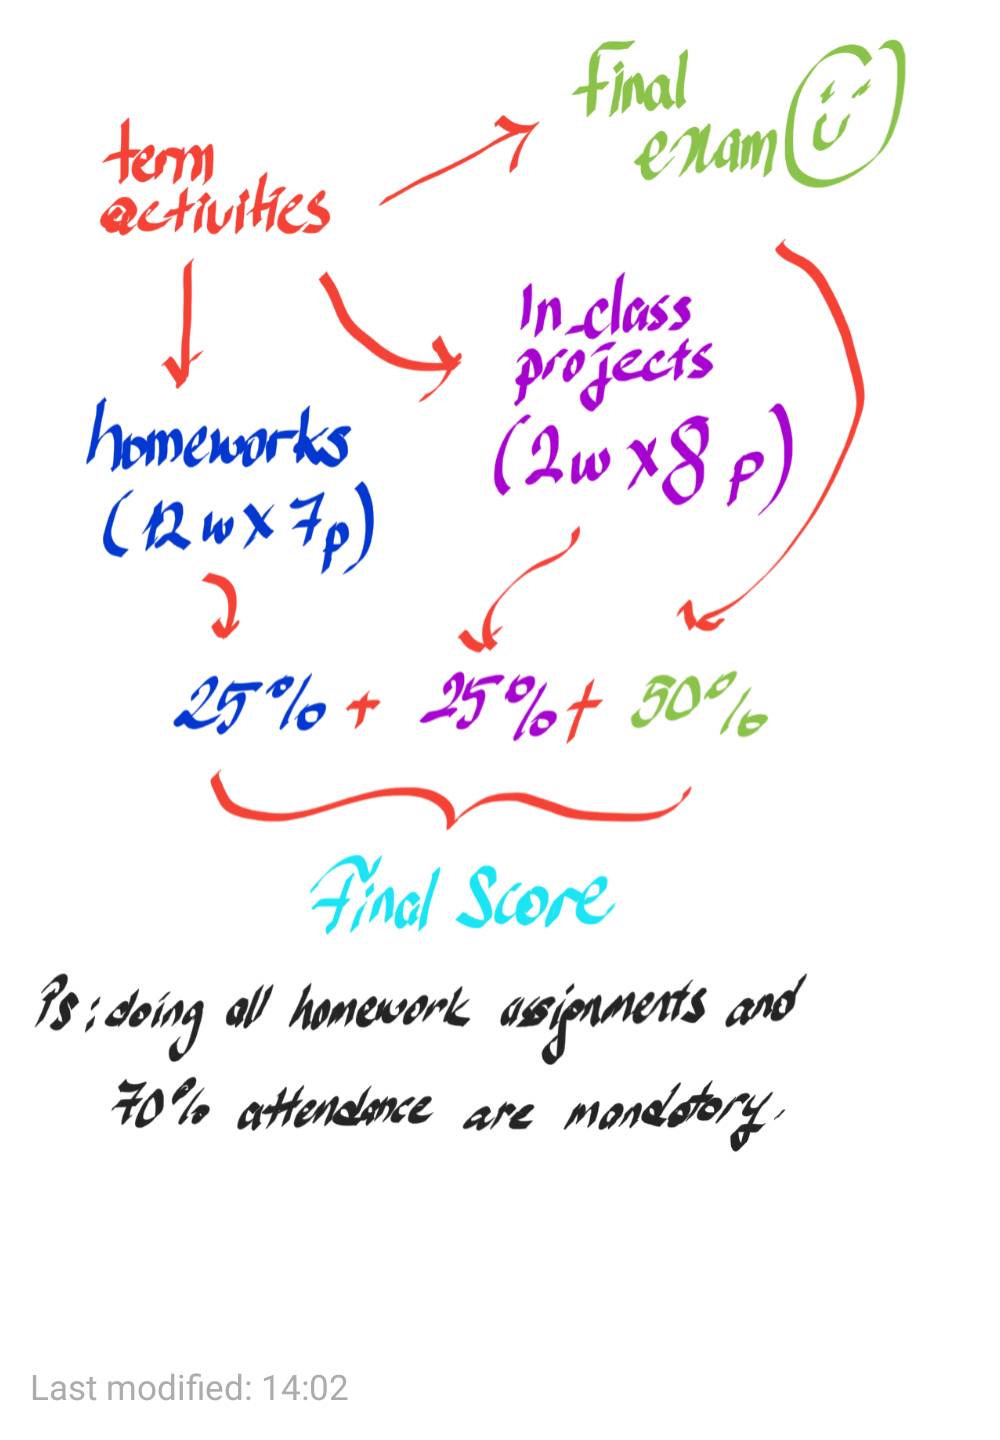 final
exam
term
activities
In_class
projects
(2w x 8p)
homeworks
(12w x 7p)
25% + 25% + 50%
Final Score
Ps: doing all homework assignments and
70% attendance are mandatory.
Last modified: 14:02